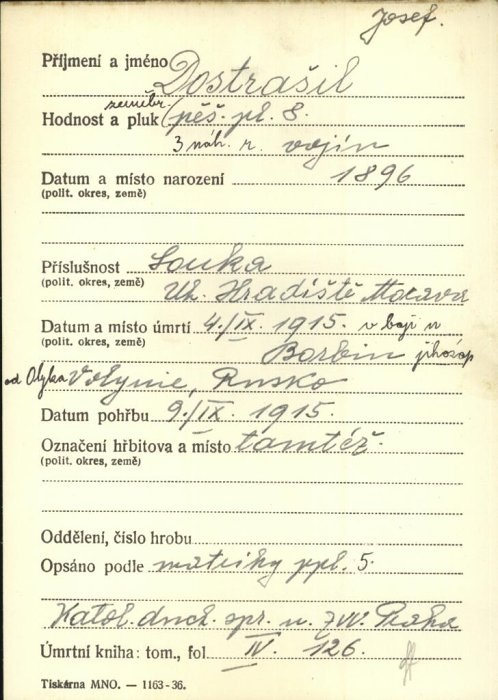 Josef.
Příjmení a jméno Dostrašil
zeměbr.
Hodnost a pluk (pěš. pl. 8.
3 náh. r. vojín
Datum a místo narození 1896
(polit. okres, země)
Příslušnost Louka
(polit. okres, země) Uh. Hradiště Morava
Datum a místo úmrtí 4./IX. 1915. v boji u
(polit. okres, země) Borbin jihozáp
od Olyka Volynie, Rusko
Datum pohřbu 9./IX. 1915.
Označení hřbitova a místo tamtéž.
(polit. okres, země)
Oddělení, číslo hrobu
Opsáno podle matriky ppl. 5.
Katol. duch. spr. u ZVV. Praha
Úmrtní kniha: tom., fol IV. 126.
Tiskárna MNO. — 1163-36.